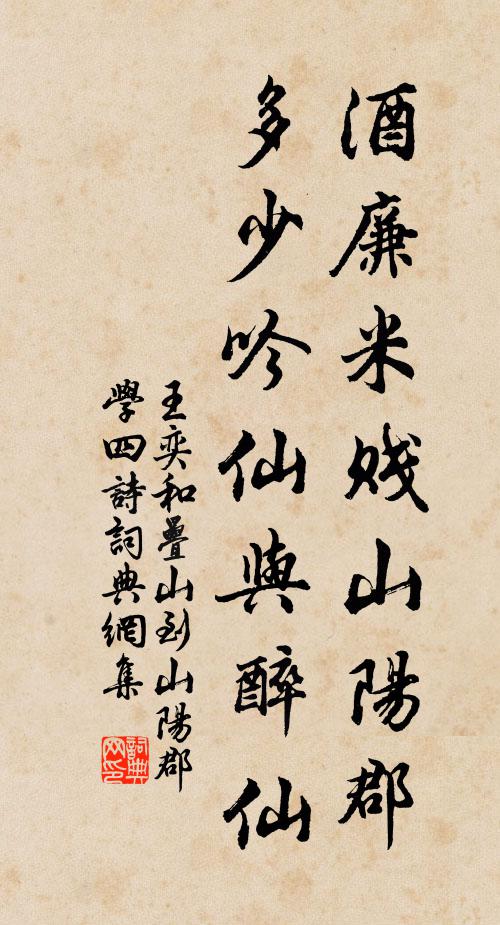 酒廉米賤山陽郡
多少吟仙與醉仙
王奕和疊山到山陽郡
學四詩詞典網集
詞典
网印